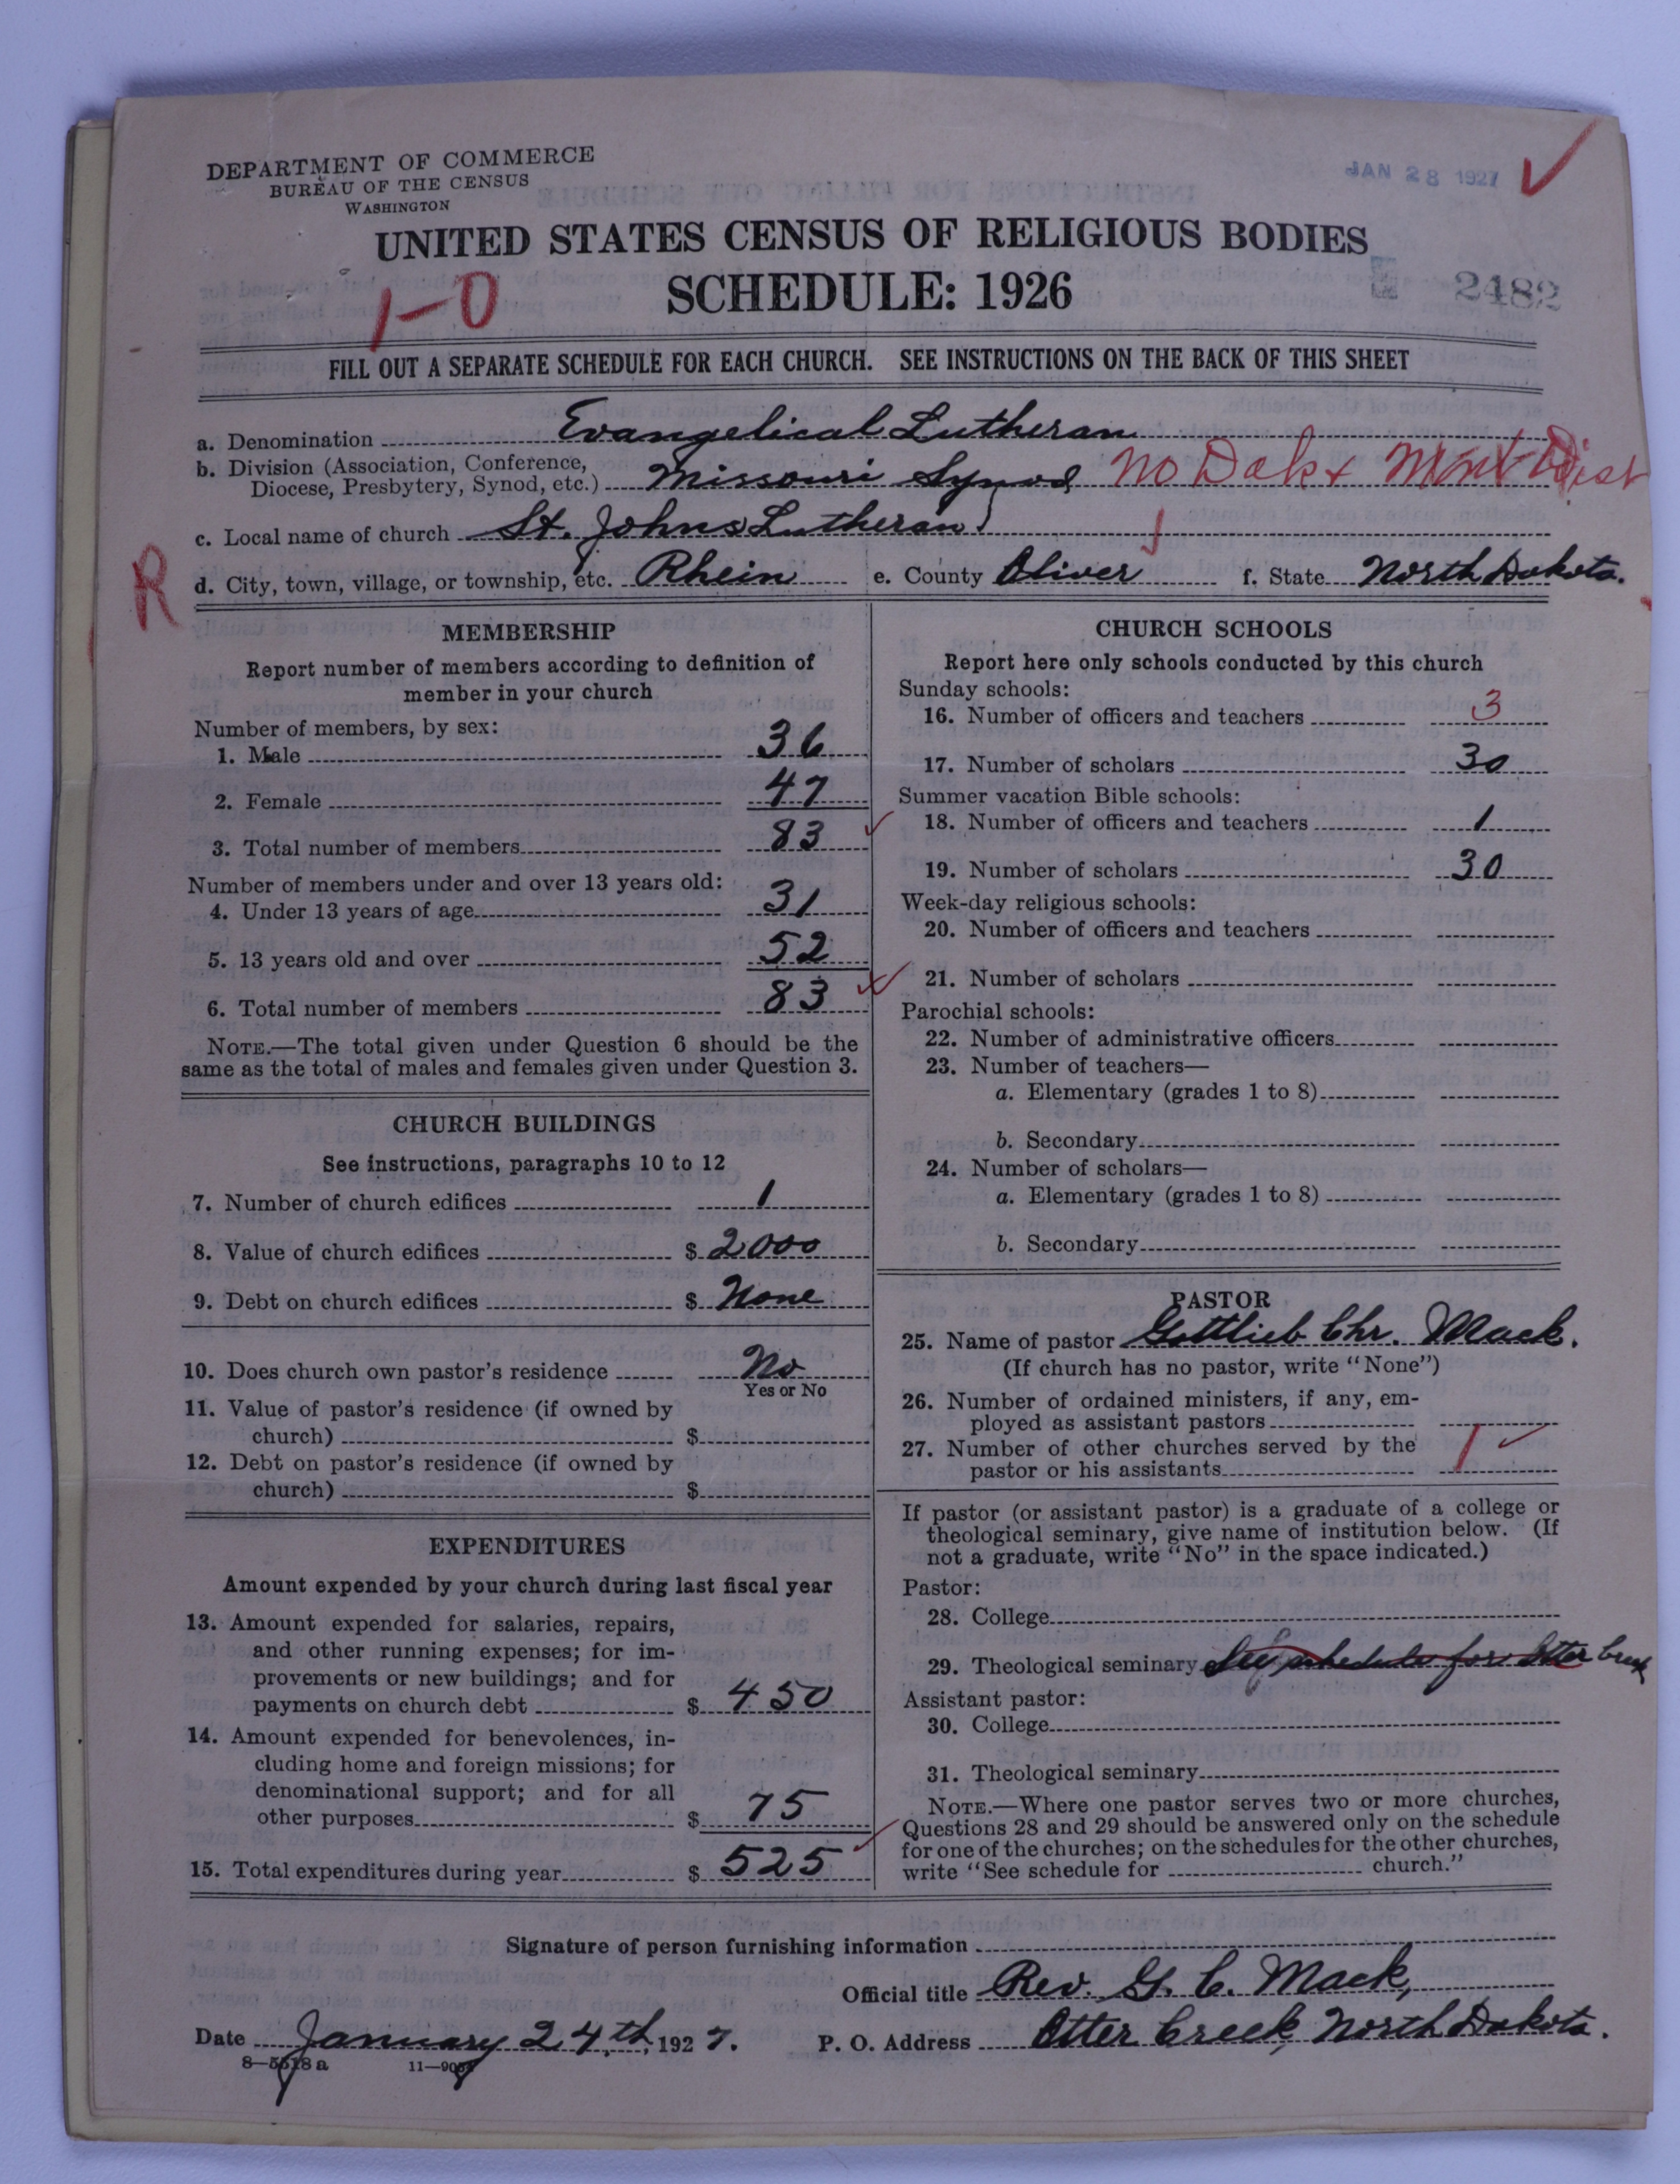 DEPARTMENT OF COMMERCE
BUREAU OF THE CENSUS
WASHINGTON
JAN 28 1927
UNITED STATES CENSUS OF RELIGIOUS BODIES
SCHEDULE: 1926
1-0
2482
FILL OUT A SEPARATE SCHEDULE FOR EACH CHURCH. SEE INSTRUCTIONS ON THE BACK OF THIS SHEET
a. Denomination Evangelical Lutheran
b. Division (Association, Conference,
Diocese, Presbytery, Synod, etc.) Missouri Synod No Dak & Mont Dist
c. Local name of church St. Johns Lutheran
R
d. City, town, village, or township, etc. Rhein e. County Oliver f. State North Dakota.
MEMBERSHIP
Report number of members according to definition of
member in your church
Number of members, by sex:
1. Male 36
2. Female 47
3. Total number of members 83
Number of members under and over 13 years old:
4. Under 13 years of age 31
5. 13 years old and over 52
6. Total number of members 83
NOTE.—The total given under Question 6 should be the
same as the total of males and females given under Question 3.
CHURCH BUILDINGS
See instructions, paragraphs 10 to 12
7. Number of church edifices 1
8. Value of church edifices $ 2000
9. Debt on church edifices $ None
10. Does church own pastor's residence No
Yes or No
11. Value of pastor's residence (if owned by
church) $
12. Debt on pastor's residence (if owned by
church) $
EXPENDITURES
Amount expended by your church during last fiscal year
13. Amount expended for salaries, repairs,
and other running expenses; for im-
provements or new buildings; and for
payments on church debt $ 450
14. Amount expended for benevolences, in-
cluding home and foreign missions; for
denominational support; and for all
other purposes $ 75
15. Total expenditures during year $ 525
CHURCH SCHOOLS
Report here only schools conducted by this church
Sunday schools:
16. Number of officers and teachers 3
17. Number of scholars 30
Summer vacation Bible schools:
18. Number of officers and teachers 1
19. Number of scholars 30
Week-day religious schools:
20. Number of officers and teachers
21. Number of scholars
Parochial schools:
22. Number of administrative officers
23. Number of teachers—
a. Elementary (grades 1 to 8)
b. Secondary
24. Number of scholars—
a. Elementary (grades 1 to 8)
b. Secondary
PASTOR
25. Name of pastor Gottlieb Chr. Mack.
(If church has no pastor, write "None")
26. Number of ordained ministers, if any, em-
ployed as assistant pastors
27. Number of other churches served by the
pastor or his assistants 1
If pastor (or assistant pastor) is a graduate of a college or
theological seminary, give name of institution below. (If
not a graduate, write "No" in the space indicated.)
Pastor:
28. College
29. Theological seminary See schedule for Otter Creek
Assistant pastor:
30. College
31. Theological seminary
NOTE.—Where one pastor serves two or more churches,
Questions 28 and 29 should be answered only on the schedule
for one of the churches; on the schedules for the other churches,
write "See schedule for church."
Signature of person furnishing information
Official title Rev. G. C. Mack,
Date January 24th, 1927. P. O. Address Otter Creek, North Dakota.
8—5518 a